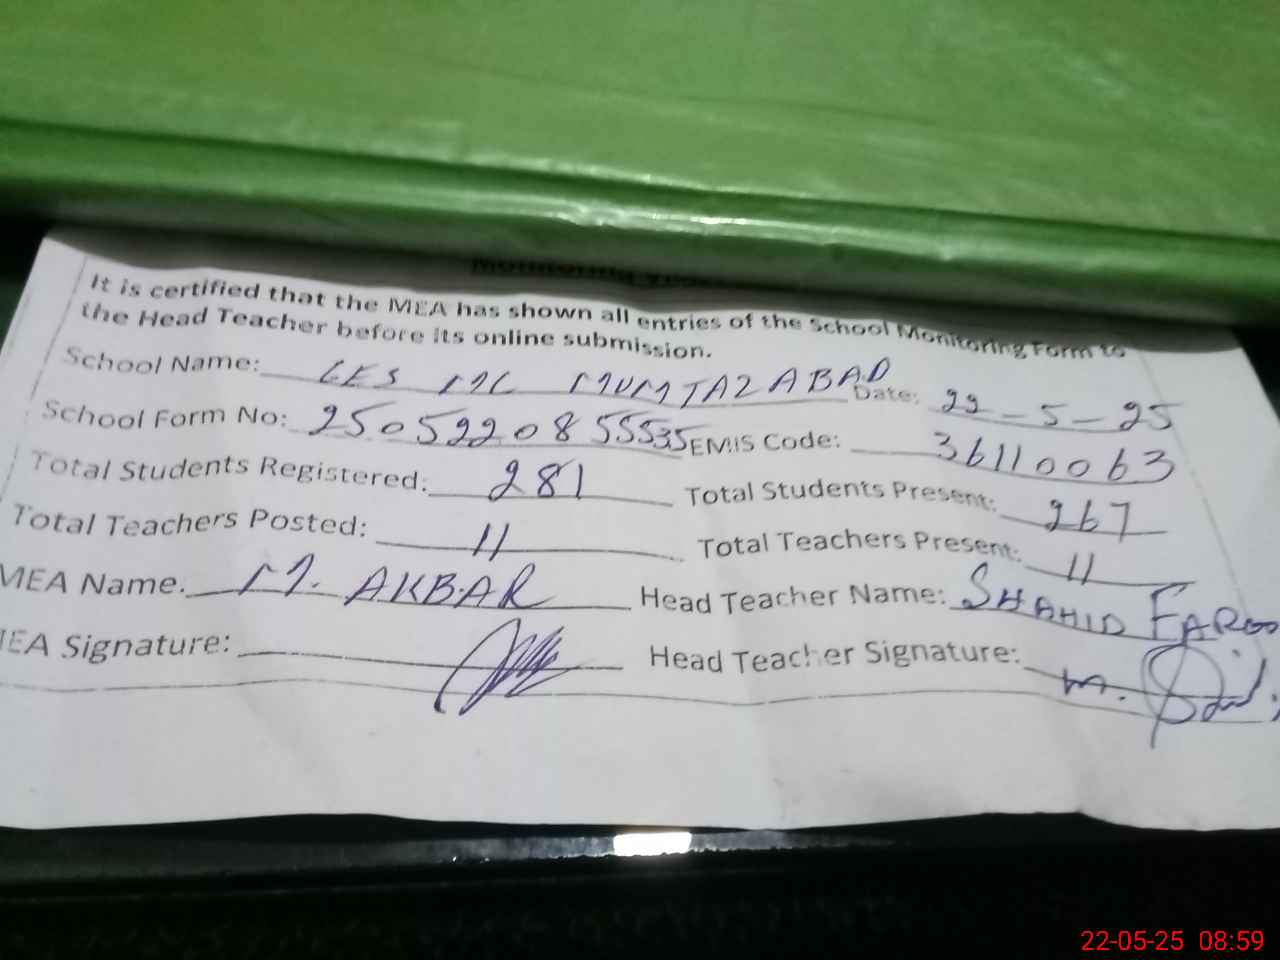 It is certified that the MEA has shown all entries of the School Monitoring Form to
the Head Teacher before its online submission.
School Name: GES MC MUMTAZABAD Date: 22-5-25
School Form No: 25052208 55535 EMIS Code: 36110063
Total Students Registered: 281 Total Students Present: 267
Total Teachers Posted: 11 Total Teachers Present: 11
MEA Name. M. AKBAR Head Teacher Name: SHAHID FAROO
IEA Signature: Head Teacher Signature: m.
22-05-25 08:59